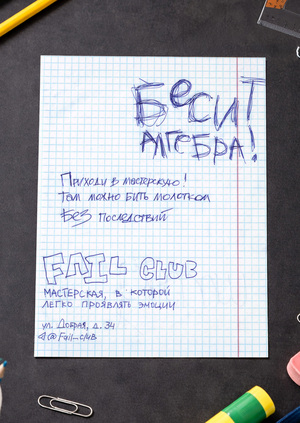 Бесит
алгебра!
Приходи в мастерскую!
Там можно бить молотком
Без последствий
FAIL CLUB
мастерская, в которой
легко проявлять эмоции
ул. Добрая, д. 34
@Fail_club